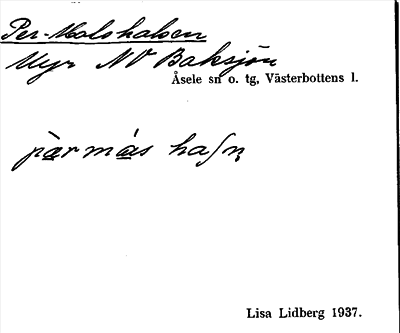 Per-Molshalsen
Myr NV Baksjön
Åsele sn o. tg, Västerbottens l.
pàrmás haʃn̥
Lisa Lidberg 1937.